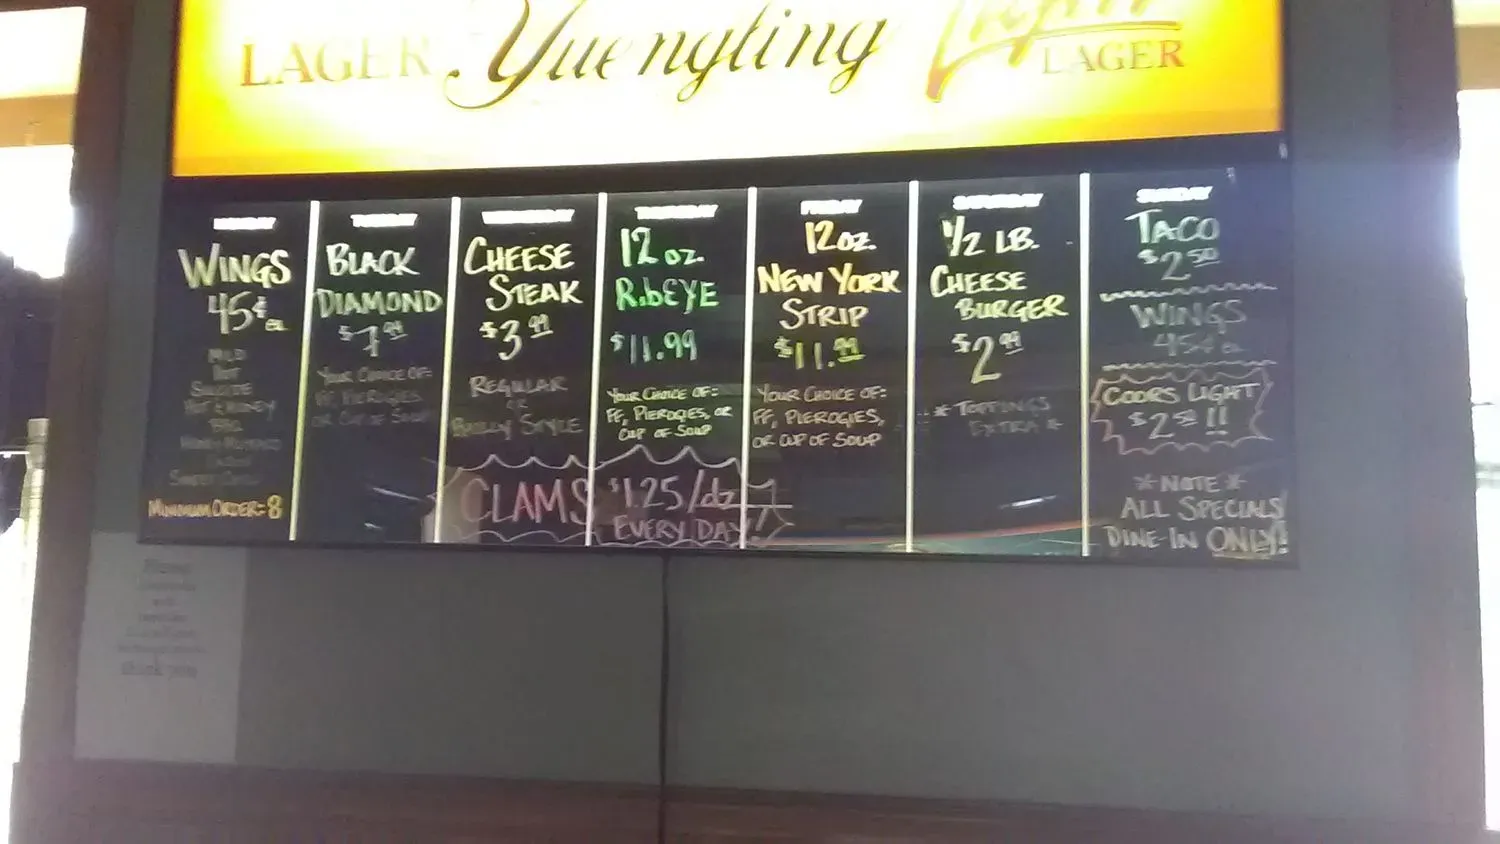 LAGER Yuengling Light LAGER
MONDAY
WINGS
45¢ ea
MILD
HOT
SUICIDE
HOT & HONEY
BBQ
HONEY MUSTARD
MINIMUM ORDER=8
TUESDAY
BLACK
DIAMOND
$7.99
YOUR CHOICE OF:
FF, PIEROGIES
OR CUP OF SOUP
WEDNESDAY
CHEESE
STEAK
$3.99
REGULAR
OR
STYLE
THURSDAY
12 oz.
RIBEYE
$11.99
YOUR CHOICE OF:
FF, PIEROGIES, OR
CUP OF SOUP
CLAMS $1.25/dz
EVERY DAY!
FRIDAY
12 OZ.
NEW YORK
STRIP
$11.99
YOUR CHOICE OF:
FF, PIEROGIES,
OR CUP OF SOUP
SATURDAY
1/2 LB.
CHEESE
BURGER
$2.99
*TOPPINGS
EXTRA*
SUNDAY
TACO
$2.50
WINGS
45¢ ea
COORS LIGHT
$2.50!!
*NOTE*
ALL SPECIALS
DINE-IN ONLY!
thank you